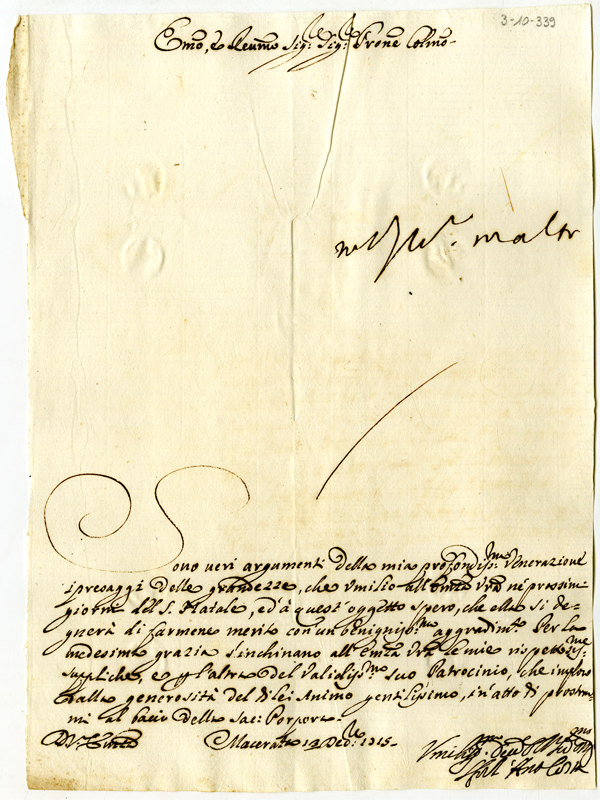 3-10-339
Emo, e Reumo Sig.r Sig.r Prone Colmo.
Sono veri argumenti della mia profondiss.ma Venerazione
i presaggi delle grandezze, che umilio all'Emza Vra ne' prossimi
giorni del S. Natale, ed à quest'oggetto spero, che ella si de-
gnerà di farmene merito con un benigniss.mo aggradim.to Per la
medesima grazia s'inchinano all'Emza Vra le mie rispettosiss.me
suppliche, e l'altra del Validiss.mo suo Patrocinio, che imploro
dalla generosità del di lei Animo gentilissimo, in atto di prostrar-
mi al bacio della Sac: Porpora.
Di V.ra Emza Macerata 12 Dec.re 1715.
Umiliss. Ant